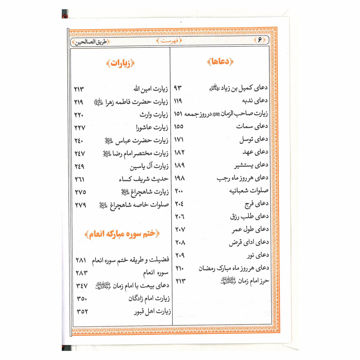 ﴿۶﴾
﴿فهرست﴾
﴿طریق الصالحین﴾
﴿دعاها﴾
دعای کمیل بن زیاد ۹۳
دعای ندبه ۱۱۹
زیارت صاحب الزمان در روز جمعه ۱۵۱
دعای سمات ۱۵۵
دعای توسل ۱۷۱
دعای عهد ۱۸۲
دعای یستشیر ۱۸۹
دعای هر روز ماه رجب ۱۹۸
صلوات شعبانیه ۲۰۰
دعای فرج ۲۰۴
دعای طلب رزق ۲۰۶
دعای طول عمر ۲۰۷
دعای ادای قرض ۲۰۸
دعای نور ۲۰۹
دعای هر روز ماه مبارک رمضان ۲۱۰
حرز امام زمان ۲۱۳
﴿زیارات﴾
زیارت امین الله ۲۱۳
زیارت حضرت فاطمه زهرا ۲۱۹
زیارت وارث ۲۲۰
زیارت عاشورا ۲۲۷
زیارت حضرت عباس ۲۴۰
زیارت مختصر امام رضا ۲۴۷
زیارت آل یاسین ۲۴۹
حدیث شریف کساء ۲۶۱
زیارت شاهچراغ ۲۷۵
صلوات خاصه شاهچراغ ۲۷۹
﴿ختم سوره مبارکه انعام﴾
فضیلت و طریقه ختم سوره انعام ۲۸۱
سوره انعام ۲۸۳
دعای بیعت با امام زمان ۳۴۷
زیارت امام زادگان ۳۵۰
زیارت اهل قبور ۳۵۲